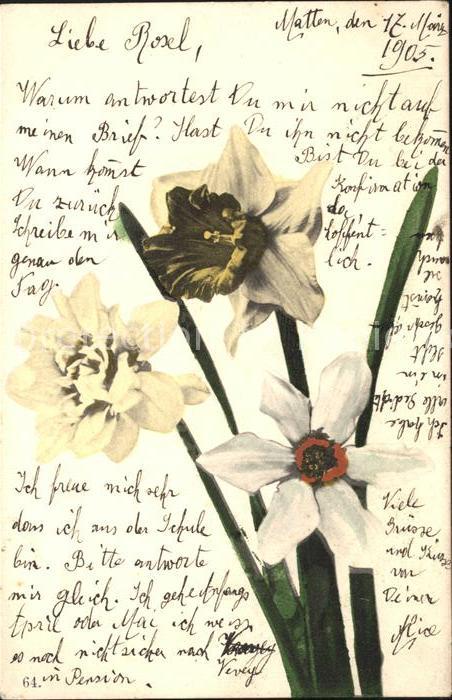 Matten, den 17. März
1905.
Liebe Rosel,
Warum antwortest Du mir nicht auf
meinen Brief? Hast Du ihn nicht bekommen
Wann komst
Du zurück
Schreibe mir
genau den
Tag.
Bist Du bei der
Konfirmation
da
hoffent-
lich.
Ich habe
alle Gedichte
in ein
Heft
Ich freue mich sehr
dass ich aus der Schule
bin. Bitte antworte
mir gleich. Ich gehe Anfangs
April oder Mai ich weiss
es noch nicht sicher nach
Vevey
in Pension.
64.
Viele
Grüsse
und Küsse
von
Deiner
Alice